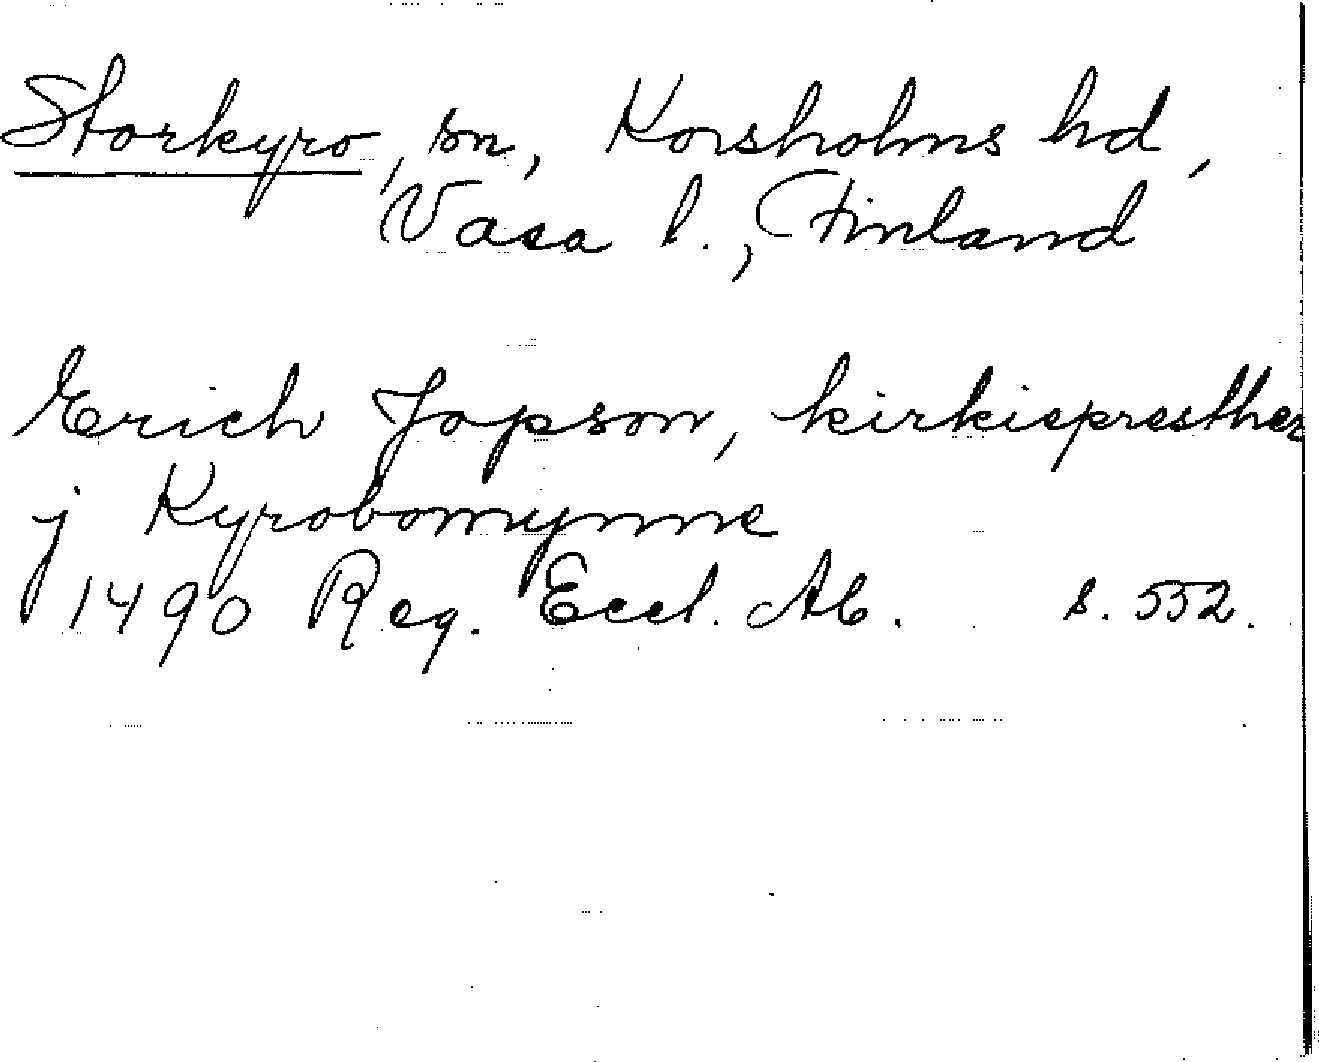 Storkyro, sn, Korsholms hd,
Vasa l., Finland
Erich Jopson, kirkiepresther
j Kyrobomynne
1490 Reg. Eccl. Ab. s. 552.